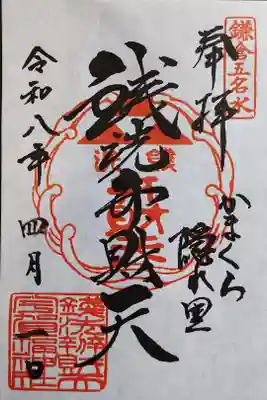 鎌倉五名水
奉拝
かまくら
隠れ里
銭洗弁財天
令和八年 四月 一日